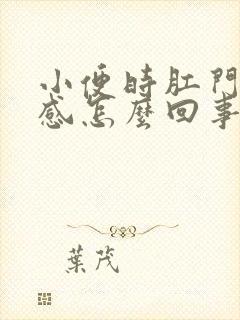 小便時肛門
感怎麼回事
葉茂